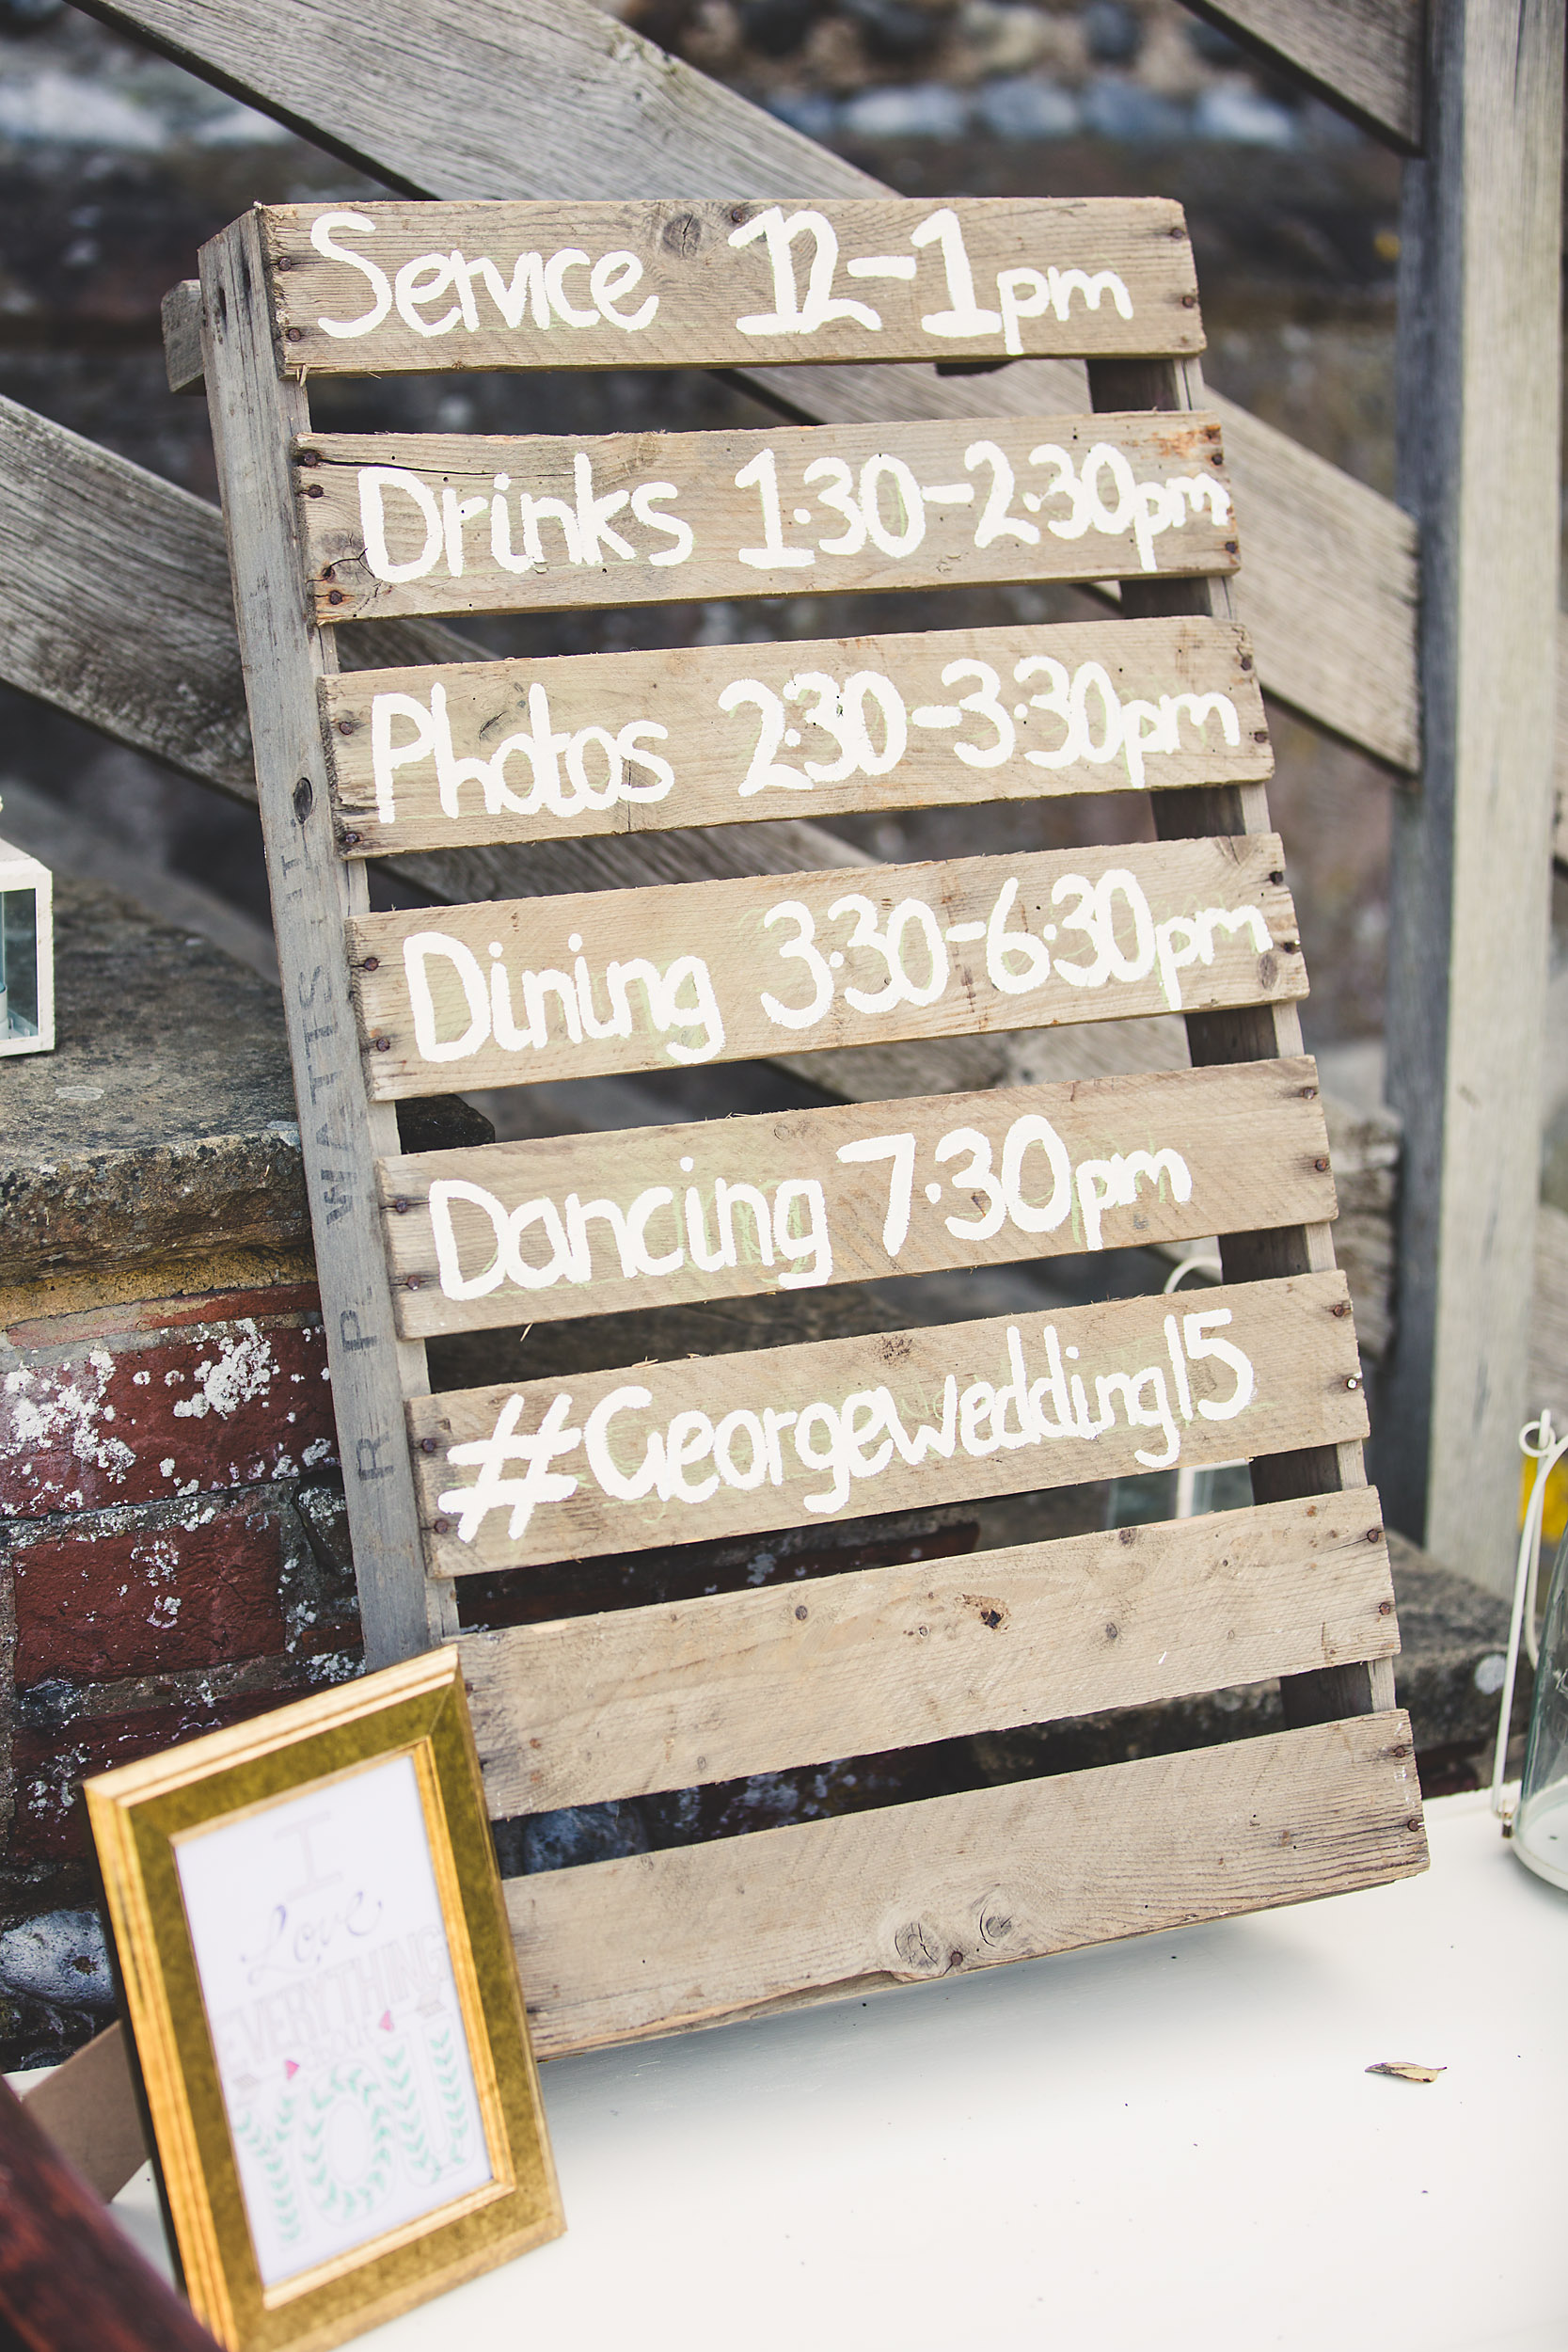 Service 12-1pm
Drinks 1.30-2.30pm
Photos 2.30-3.30pm
Dining 3.30-6.30pm
Dancing 7.30pm
#Georgewedding15
R P WATTS LT
I
Love
EVERYTHING
about
YOU